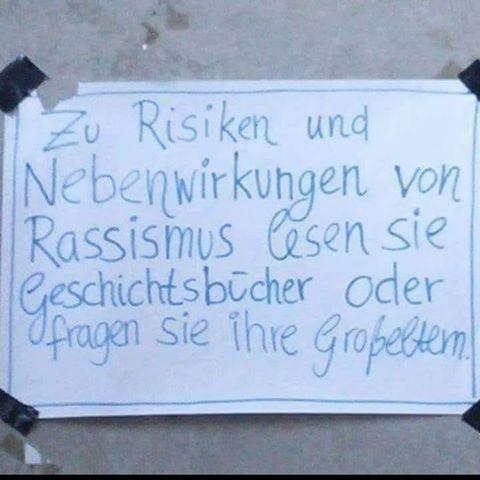 Zu Risiken und
Nebenwirkungen von
Rassismus lesen sie
Geschichtsbücher oder
fragen sie ihre Großeltern.